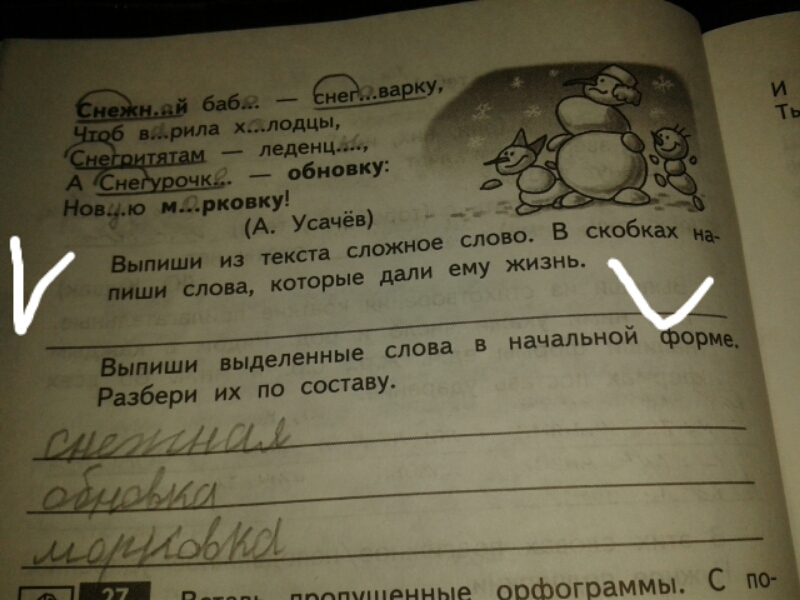 Снежн...й баб... — снег...варку,
Чтоб в...рила х...лодцы,
Снегритятам — леденц....,
А Снегурочк... — обновку:
Нов...ю м...рковку!
(А. Усачёв)
Выпиши из текста сложное слово. В скобках на-
пиши слова, которые дали ему жизнь.
Выпиши выделенные слова в начальной форме.
Разбери их по составу.
снежная
обновка
морковка
27 Вставь пропущенные орфограммы. С по-
И